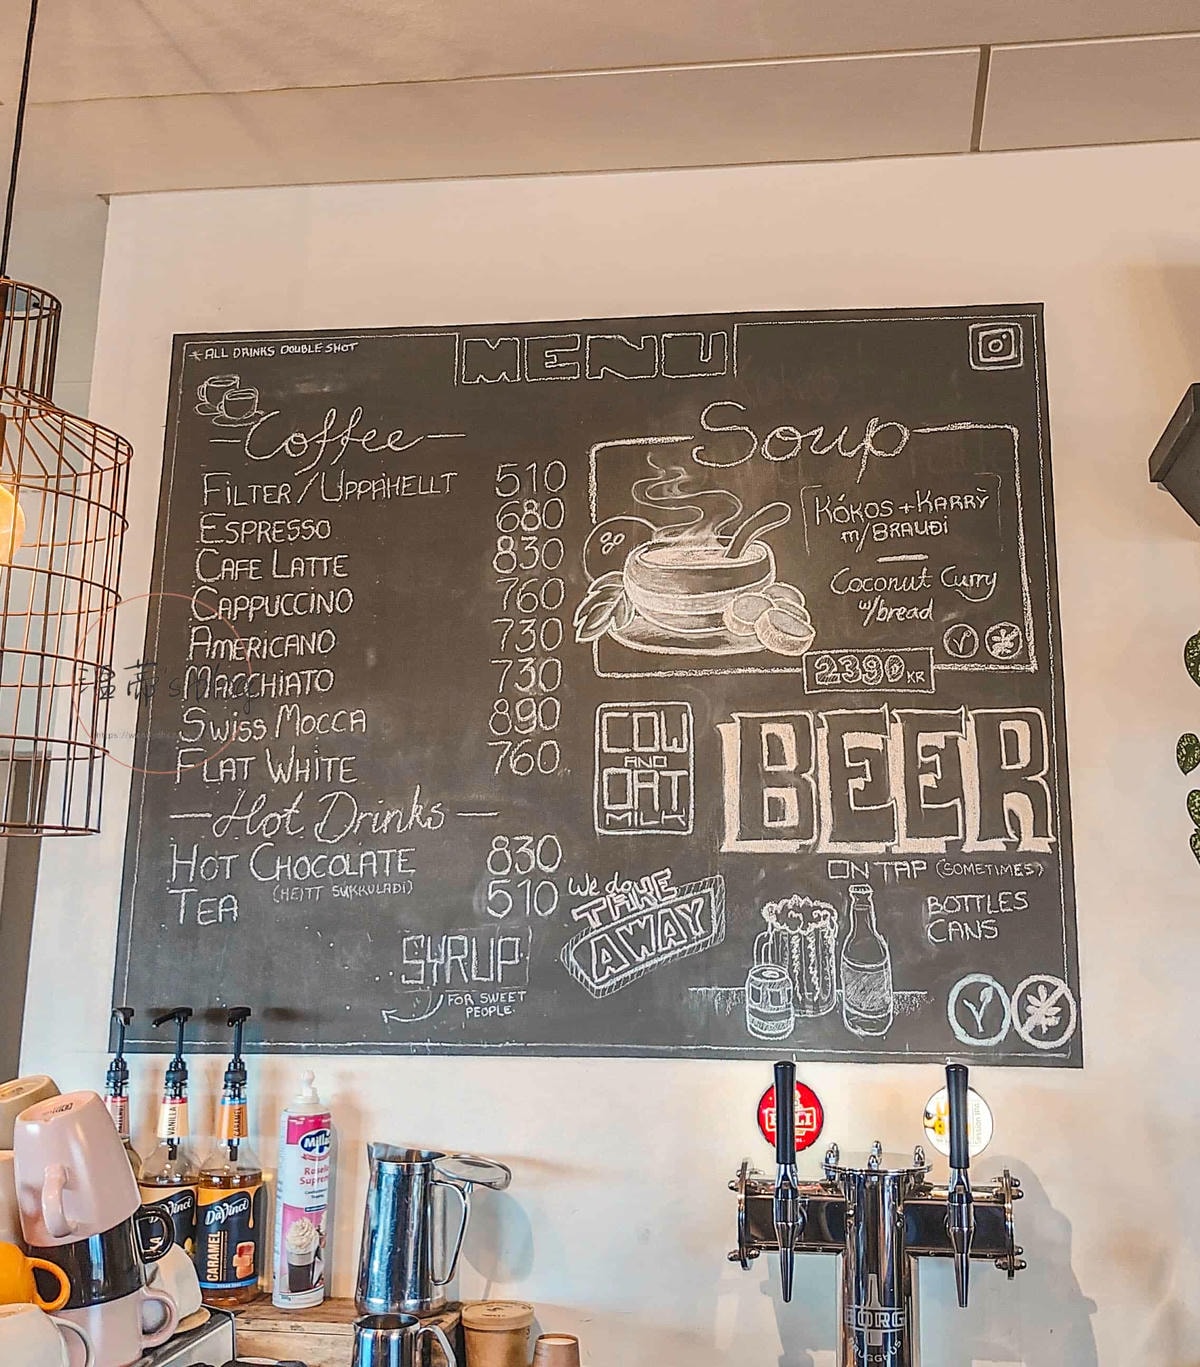 *ALL DRINKS DOUBLE SHOT
MENU
Coffee
FILTER/UPPÁHELLT 510
ESPRESSO 680
CAFE LATTE 830
CAPPUCCINO 760
AMERICANO 730
MACCHIATO 730
SWISS MOCCA 890
FLAT WHITE 760
Hot Drinks
HOT CHOCOLATE 830
(HEITT SUKKULAÐI)
TEA 510
SYRUP
FOR SWEET
PEOPLE.
Soup
KÓKOS + KARRÝ
m/BRAUÐI
Coconut Curry
w/bread
2390 KR
COW
AND
OAT
MILK
BEER
ON TAP (SOMETIMES)
BOTTLES
CANS
We do
TAKE
AWAY
VANILLA
CARAMEL
DaVinci
DaVinci
CARAMEL
Millac
BORG
BRUGGHÚS